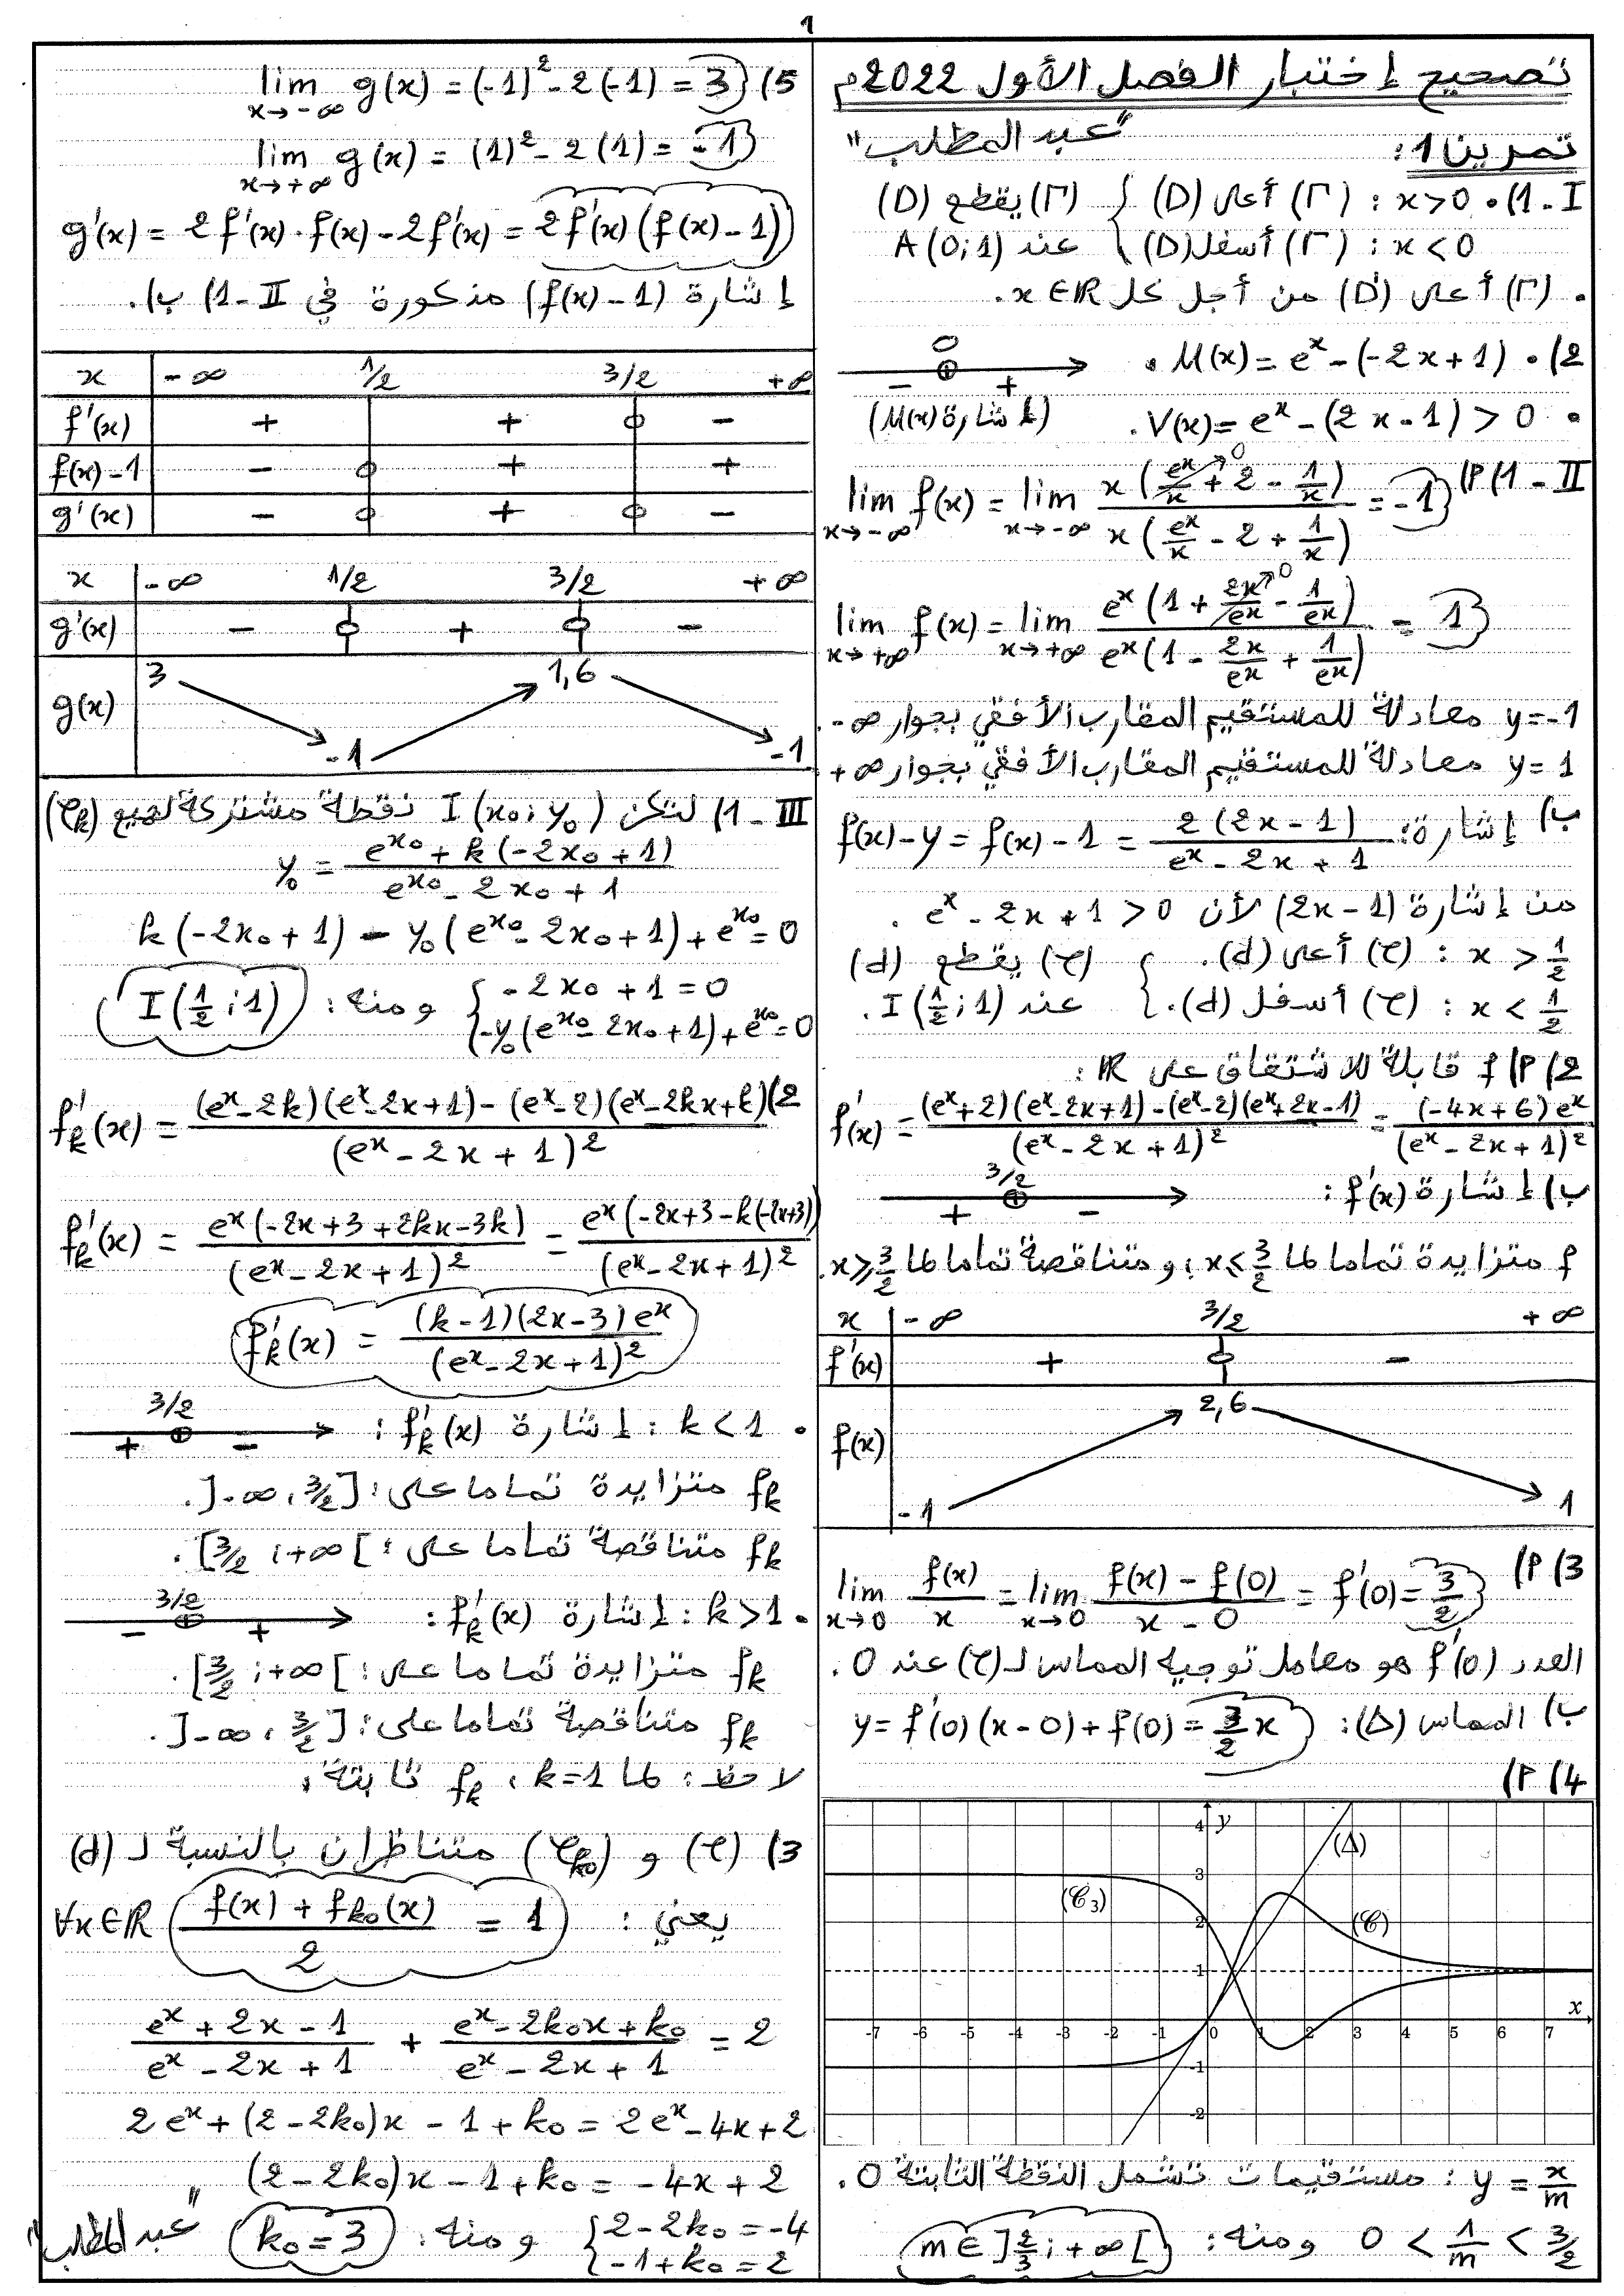 1
تصحيح إختبار الفصل الأول 2022م
"عبد المطلب"
تمرين 1 :
I - 1) • x > 0 : (Γ) أعلى (D) } (Γ) يقطع (D)
x < 0 : (Γ) أسفل (D) } عند A(0;1)
• (Γ) أعلى (D') من أجل كل x∈ℝ.
2) • M(x) = e^x - (-2x+1) .
0
- +
• V(x) = e^x - (2x-1) > 0 . (إشارة M(x))
II - 1) أ) lim x→-∞ f(x) = lim x→-∞ x(e^x/x + 2 - 1/x) / x(e^x/x - 2 + 1/x) = -1
lim x→+∞ f(x) = lim x→+∞ e^x(1 + 2x/e^x - 1/e^x) / e^x(1 - 2x/e^x + 1/e^x) = 1
y=-1 معادلة للمستقيم المقارب الأفقي بجوار -∞.
y=1 معادلة للمستقيم المقارب الأفقي بجوار +∞
ب) إشارة: f(x)-y = f(x)-1 = 2(2x-1) / (e^x-2x+1)
من إشارة (2x-1) لأن e^x-2x+1 > 0 .
x > 1/2 : (C) أعلى (d). } (C) يقطع (d)
x < 1/2 : (C) أسفل (d). } عند I(1/2;1).
2) أ) f قابلة للاشتقاق على ℝ :
f'(x) = ((e^x+2)(e^x-2x+1)-(e^x-2)(e^x+2x-1)) / (e^x-2x+1)^2 = (-4x+6)e^x / (e^x-2x+1)^2
ب) إشارة f'(x) :
3/2
+ -
f متزايدة تماما لما x ≤ 3/2 ; ومتناقصة تماما لما x ≥ 3/2.
x -∞ 3/2 +∞
f'(x) + 0 -
f(x) -1 2,6 1
3) أ) lim x→0 f(x)/x = lim x→0 (f(x)-f(0))/(x-0) = f'(0) = 3/2
العدد f'(0) هو معامل توجيه المماس لـ (C) عند 0.
ب) المماس (Δ): y = f'(0)(x-0)+f(0) = 3/2 x
4) أ)
y x
(Δ) (C) (C3)
4 3 2 1 -1 -2
-7 -6 -5 -4 -3 -2 -1 0 1 2 3 4 5 6 7
y = x/m : مستقيمات تشمل النقطة الثابتة O.
0 < 1/m < 3/2 ومنه: m∈]2/3;+∞[
5) lim x→-∞ g(x) = (-1)^2 - 2(-1) = 3
lim x→+∞ g(x) = (1)^2 - 2(1) = -1
g'(x) = 2f'(x)·f(x) - 2f'(x) = 2f'(x)(f(x)-1)
إشارة (f(x)-1) مذكورة في II-1) ب).
x -∞ 1/2 3/2 +∞
f'(x) + + 0 -
f(x)-1 - 0 + +
g'(x) - 0 + 0 -
x -∞ 1/2 3/2 +∞
g'(x) - 0 + 0 -
g(x) 3 -1 1,6 -1
III - 1) لتكن I(x0;y0) نقطة مشتركة لجميع (Ck)
y0 = (e^x0 + k(-2x0+1)) / (e^x0 - 2x0 + 1)
k(-2x0+1) - y0(e^x0 - 2x0+1) + e^x0 = 0
{ -2x0+1 = 0
{ -y0(e^x0 - 2x0+1)+e^x0 = 0 ومنه: I(1/2;1)
2) f'k(x) = ((e^x-2k)(e^x-2x+1) - (e^x-2)(e^x-2kx+k)) / (e^x-2x+1)^2
f'k(x) = e^x(-2x+3+2kx-3k) / (e^x-2x+1)^2 = e^x(-2x+3-k(-2x+3)) / (e^x-2x+1)^2
f'k(x) = (k-1)(2x-3)e^x / (e^x-2x+1)^2
• k<1 : إشارة f'k(x) :
3/2
+ -
fk متزايدة تماما على: ]-∞,3/2].
fk متناقصة تماما على: [3/2;+∞[.
• k>1 : إشارة f'k(x) :
3/2
- +
fk متزايدة تماما على: [3/2;+∞[.
fk متناقصة تماما على: ]-∞,3/2].
لاحظ: لما k=1، fk ثابتة.
3) (C) و (Ck0) متناظران بالنسبة لـ (d)
يعني: ∀x∈ℝ (f(x)+fk0(x))/2 = 1
(e^x+2x-1)/(e^x-2x+1) + (e^x-2k0x+k0)/(e^x-2x+1) = 2
2e^x+(2-2k0)x-1+k0 = 2e^x-4x+2
(2-2k0)x-1+k0 = -4x+2
{ 2-2k0=-4
{ -1+k0=2 ومنه: k0=3
"عبد المطلب"